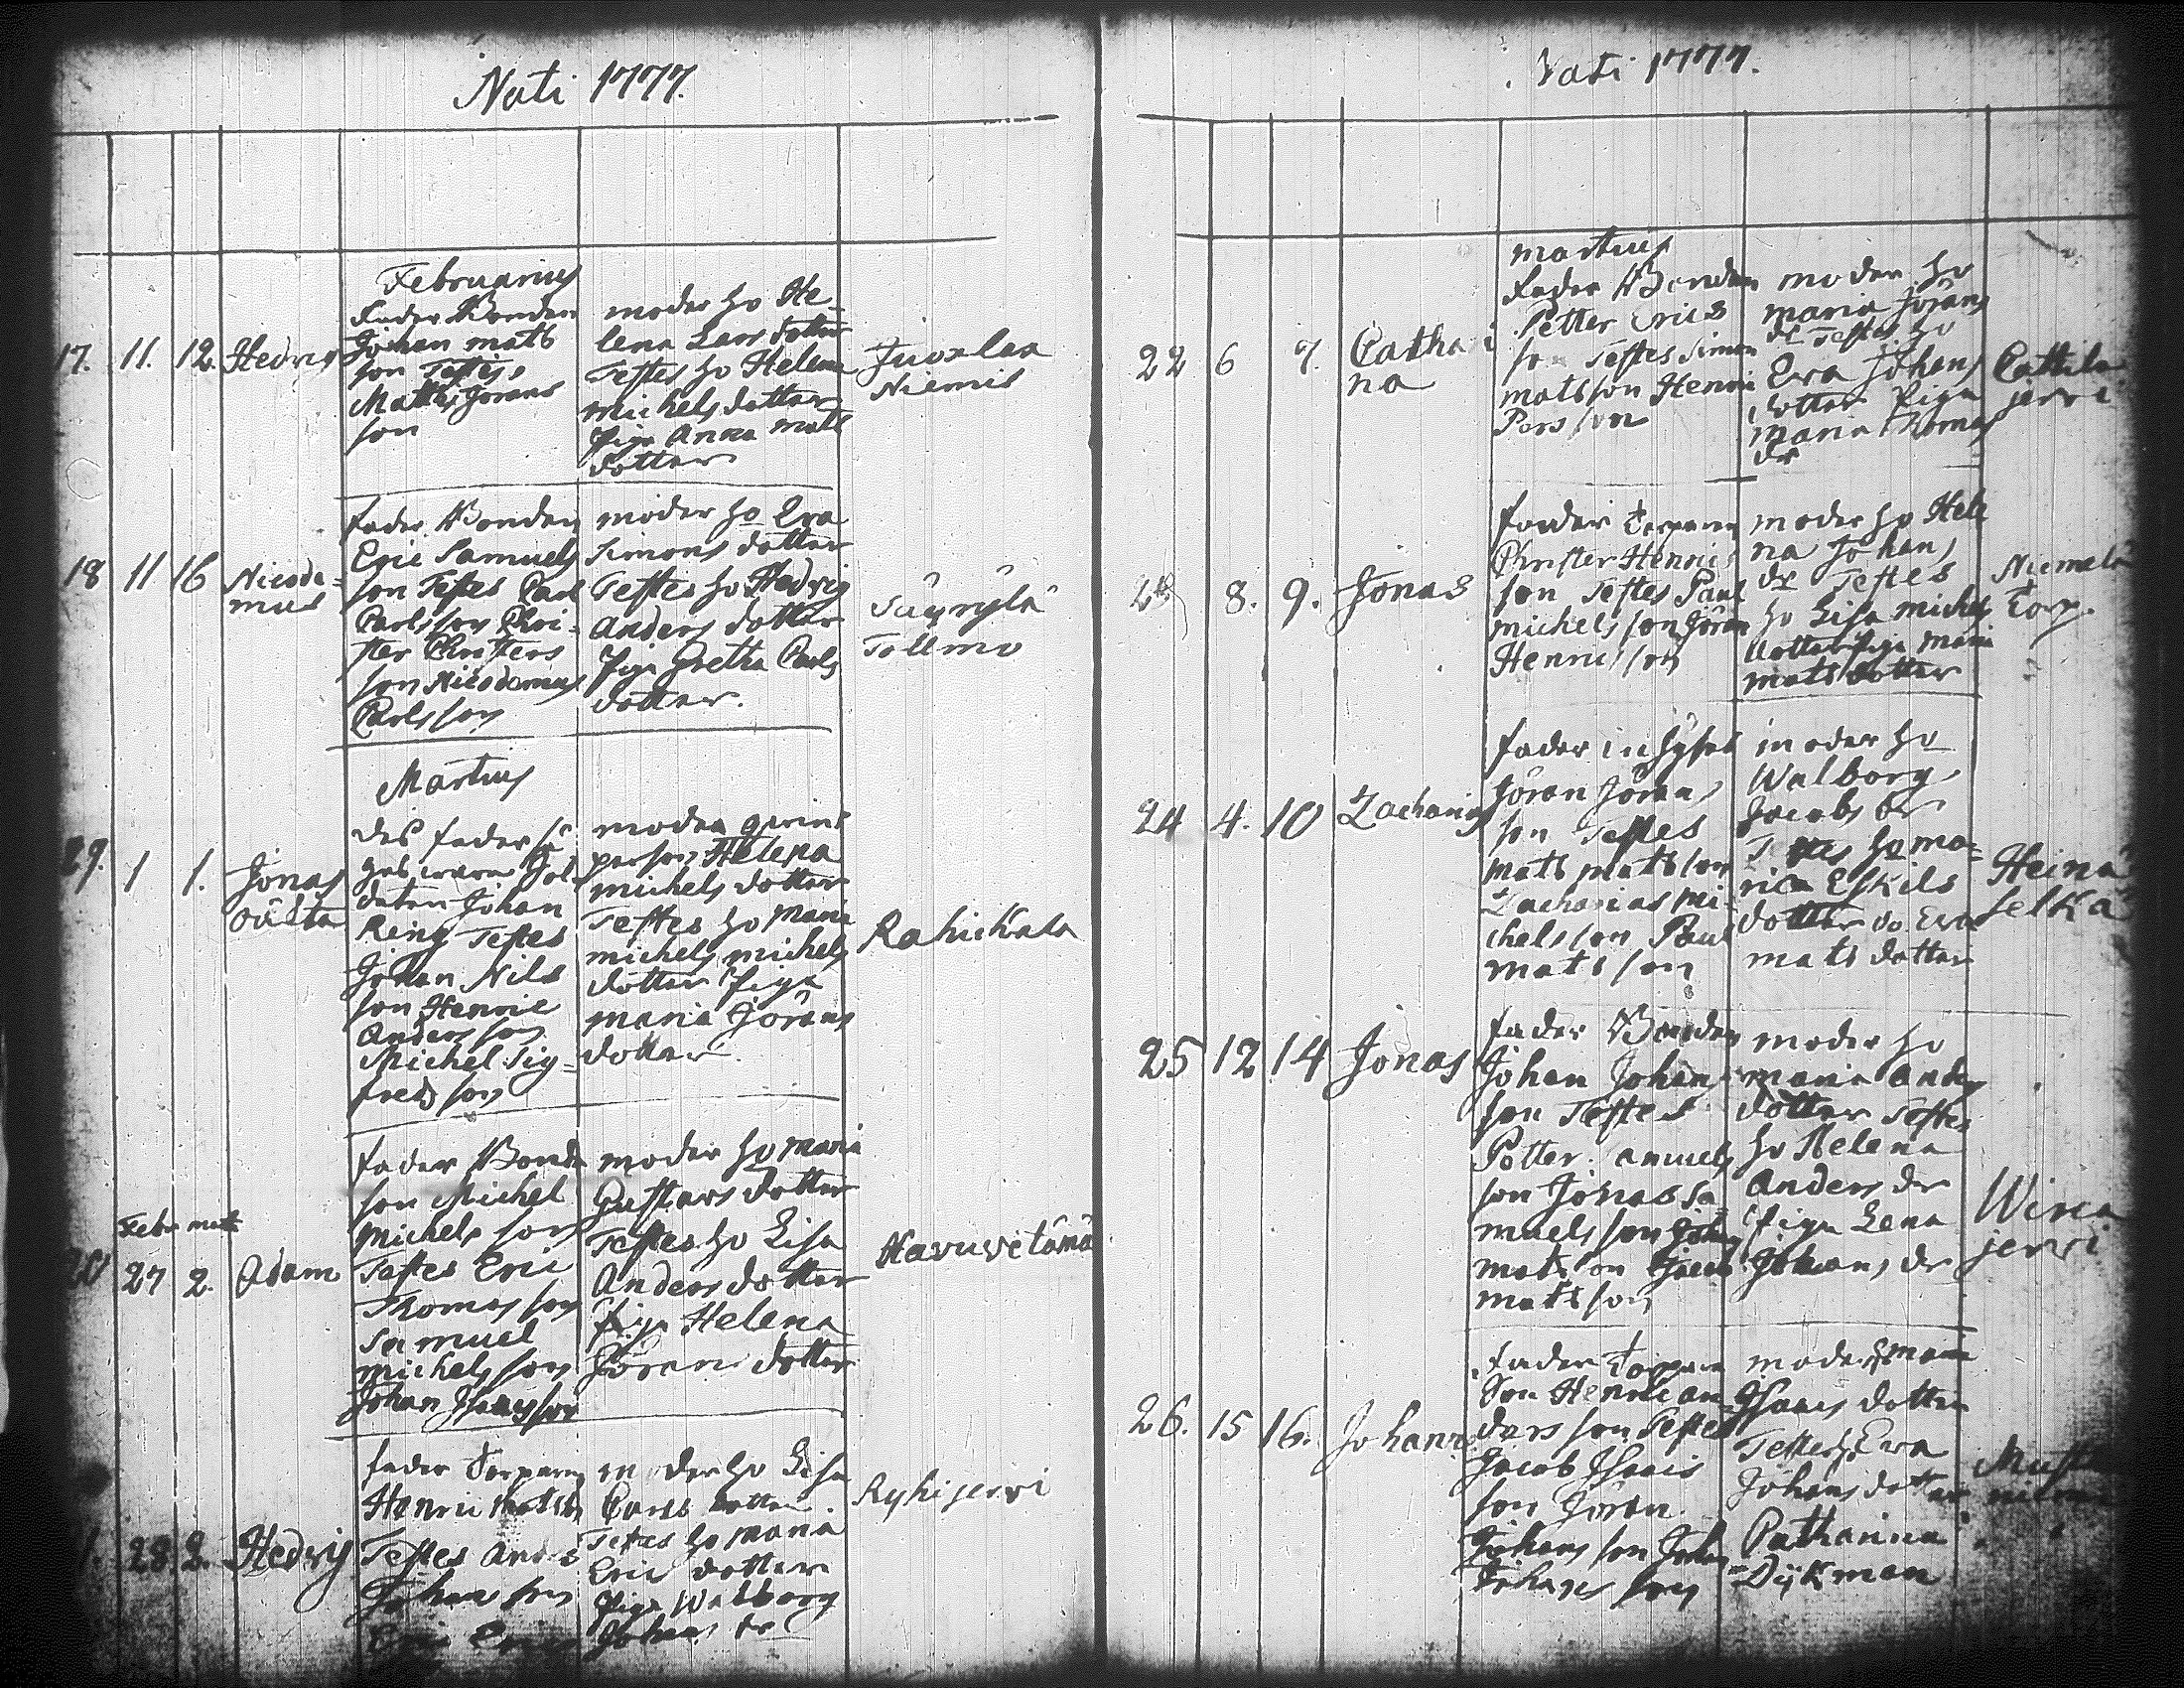 Nati 1777.
Februarius
17. 11. 12. Hedvig
Fader Bonden
Johan mats
son Testes
Matts Jörans
son
moder ho He-
lena Lars dotter
Testes ho Helena
michels dotter
Piga Anna mats
dotter
Juvalax
Niemis
18 11 16 Nicode-
mus
fader Bonden
Eric Samuels
son Testes Carl
Carlsson Chri-
ster Christers
son Nicodemus
Carlsson
moder ho Eva
Simons dotter
Testes ho Hedvig
Anders dotter
Piga Gretha Carls
dotter.
Tollmo
Martius
1 1. Jonas
oäkta
des fader
daten Johan
Ring Testes
Johan Nils
son Henric
Anders son
Michel Sig-
freds son
moder
person Helena
michels dotter
Testes ho Maria
michels michels
dotter Piga
maria Jörans
dotter.
Rahickala
Febr mart
27 2. Adam
fader Bonde
son Michel
michels son
Testes Eric
Thomas son
Samuel
michels son
Johan Isacsson
moder ho maria
Gustavs dotter
Testes ho Lisa
Anders dotter
Piga Helena
Jörans dotter
28 2. Hedvig
fader Torparen
Henric
Testes Anders
Johan son
moder ho Lisa
Carls dotter.
Testes ho maria
Eric dotter
Piga Walborg
Johans dr
Ryhijervi
Nati 1777.
martius
22 6 7. Catha
na
Fader Bonden
Petter Erics
son Testes Simon
matsson Henric
Persson
moder ho
maria Jörans
dr Testes ho
Eva Johans
dotter Piga
maria Thomas
dr
Cattila
jervi
23 8. 9. Jonas
fader Torparen
Christer Henrics
son Testes Paul
michels son Jöran
Henrics son
moder ho Hele
na Johans
dr Testes
ho Lisa michels
dotter Piga maria
mats dotter
Niemelä
Torp.
24 4. 10 Zacharias
fader inhyses
Jöran Jörans
son Testes
mats mats son
Zacharias mi-
chels son Paul
mats son
moder ho
Walborg
Jacobs dr
Testes ho ma-
ria Eskils
dotter do Eva
mats dotter
Heinä
selkä
25 12 14 Jonas
fader Bonden
Johan Johans
son Testes
Petter Samuels
son Jonas Sa
muels son Johan
mats son Jacob
mats son
moder ho
maria Anders
dotter Testes
ho Helena
Anders dr
Piga Lena
Johans dr
Wirca
jervi
26. 15 16. Johanes
fader Torpare
son Henric an
ders son Testes
Jacob Isacs
son Jöran
Johans son Johan
Johans son
moder ho maria
Isacs dotter
Testes ho Eva
Johans dotter
Catharina
Dyckman